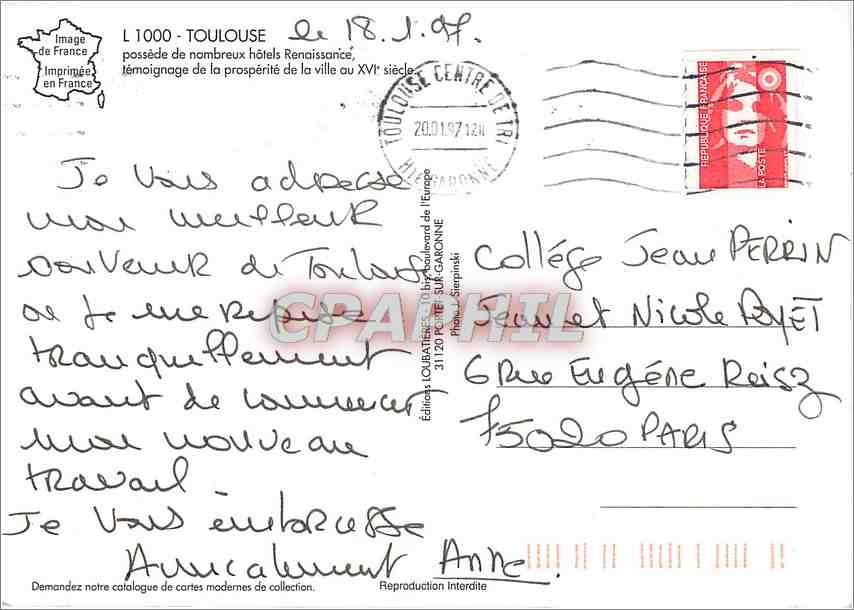 Image
de France
Imprimée
en France
L 1000 - TOULOUSE
possède de nombreux hôtels Renaissance,
témoignage de la prospérité de la ville au XVIe siècle.
le 18.1.97.
TOULOUSE CENTRE DE TRI
20.01.97 12H
HTE GARONNE
RÉPUBLIQUE FRANÇAISE
LA POSTE
Je vous adresse
mon meilleur
souvenir de Toulouse
où je me repose
tranquillement
avant de commencer
mon nouveau
travail
Je vous embrasse
Amicalement Anne.
Éditions LOUBATIÈRES - 10 bis, boulevard de l'Europe
31120 PORTET-SUR-GARONNE
Photo J. Sierpinski
CPAPHIL
Collége Jean PERRIN
Jean et Nicole POYET
6 rue Eugéne Reisz
75020 PARIS
Demandez notre catalogue de cartes modernes de collection.
Reproduction Interdite